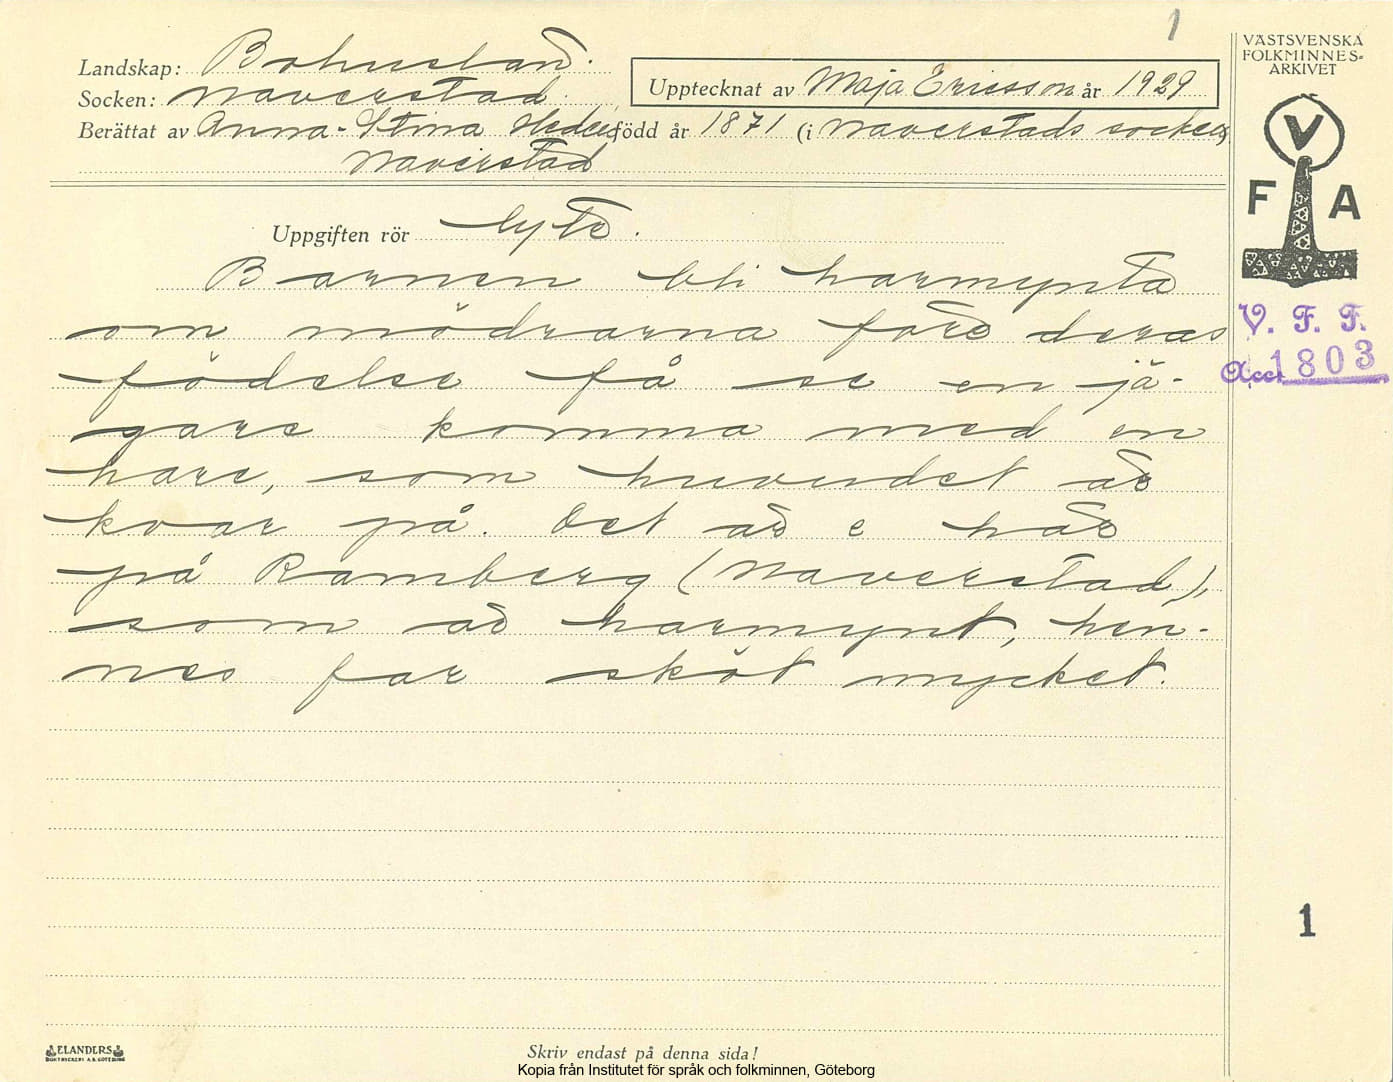 1
Landskap: Bohuslän.
Socken: Naverstad.
Upptecknat av Maja Ericsson år 1929
Berättat av Anna-Stina född år 1871 (i Naverstads socken)
Naverstad
VÄSTSVENSKA
FOLKMINNES-
ARKIVET
V
F A
V. F. F.
Acc. 1803
Uppgiften rör lyte.
Barnen bli harmynta
om mödrarna före deras
födelse få se en jä-
gare komma med en
hare, som huvudet är
kvar på. Det är e här
på Ramberg (Naverstad),
som är harmynt, hen-
nes far sköt mycket.
1
ELANDERS
BOKTRYCKERI A.B. GÖTEBORG
Skriv endast på denna sida!
Kopia från Institutet för språk och folkminnen, Göteborg